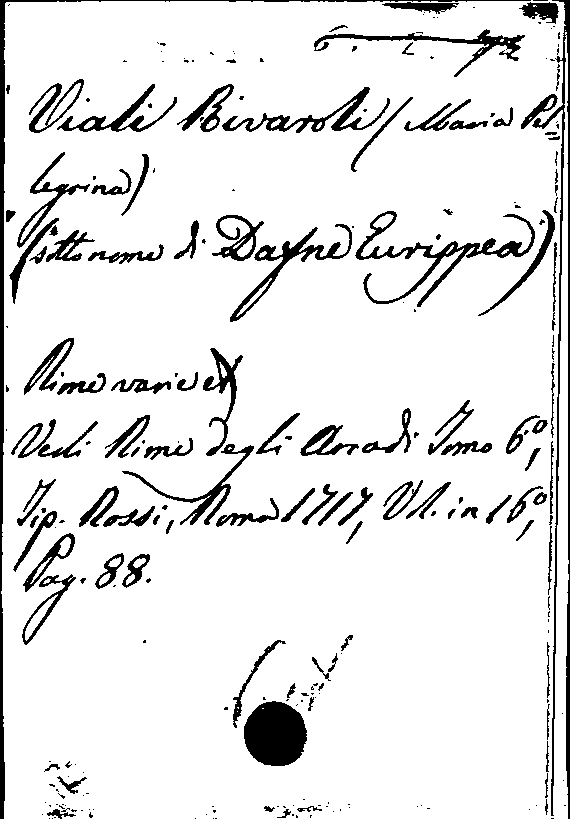 Viali Rivaroli (Maria Pel-
legrina)
(sotto nome di Dafne Eurippea)
Rime varie
Vedi Rime degli Arcadi Tomo 6º,
Tip. Rossi, Roma 1717, Vol. in 16º,
Pag. 88.